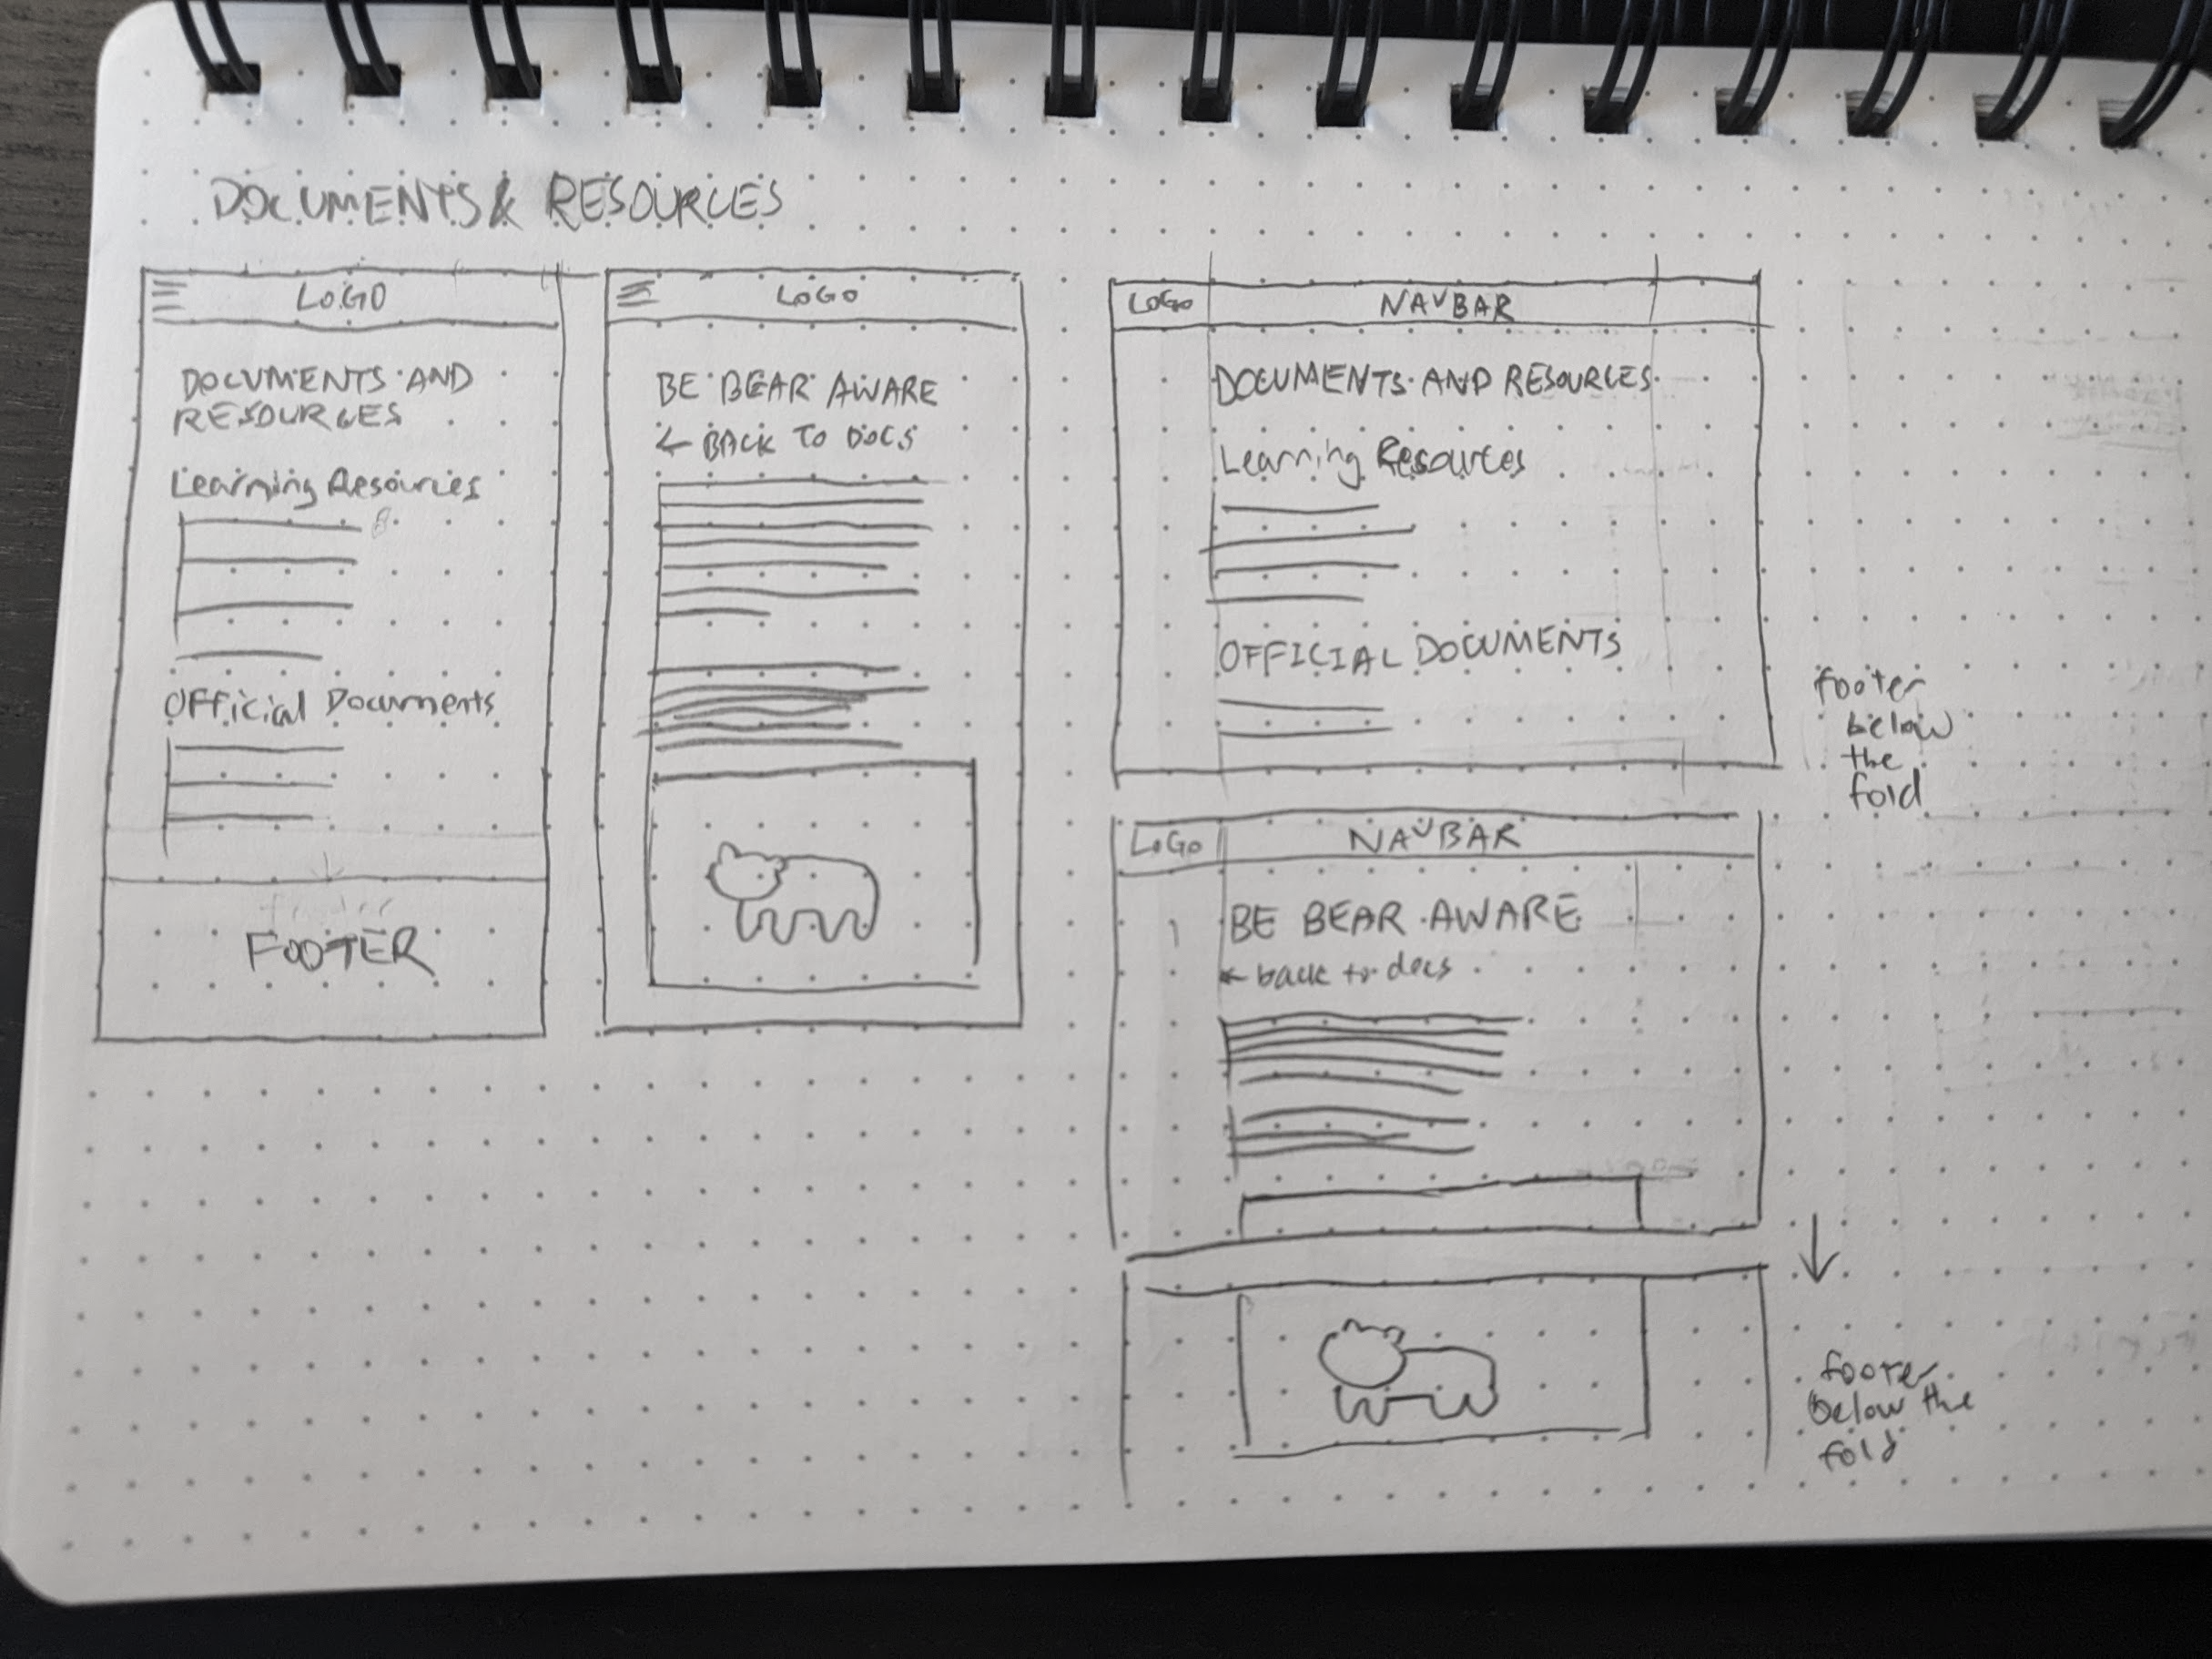 DOCUMENTS & RESOURCES
LOGO
DOCUMENTS AND
RESOURCES
Learning Resources
Official Documents
FOOTER
LOGO
BE BEAR AWARE
← BACK TO DOCS
LOGO
NAVBAR
DOCUMENTS AND RESOURCES
Learning Resources
OFFICIAL DOCUMENTS
footer
below
the
fold
LOGO
NAVBAR
BE BEAR AWARE
← back to docs
footer
below the
fold